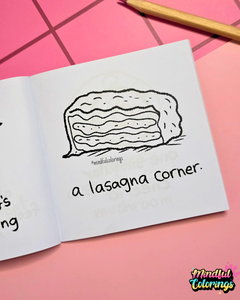 #mindfulcolorings
a lasagna corner.
's
ng
Mindful
Colorings